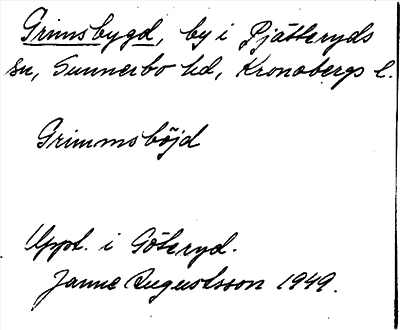 Grimsbygd, by i Pjätteryds
sn, Sunnerbo hd, Kronobergs l.
Grimmsböjd
Uppt. i Göteryd.
Janne Augustsson 1949.